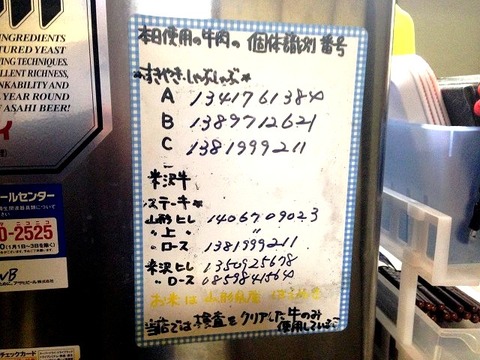 INGREDIENTS
TURED YEAST
ING TECHNIQUES.
LLENT RICHNESS,
NKABILITY AND
YEAR ROUND
F ASAHI BEER!
ールセンター
0-2525
本日使用の牛肉の個体識別番号
★すきやき・しゃぶしゃぶ★
A 1341761384
B 1389712621
C 1381999211
米沢牛
ステーキ★
山形ヒレ 1406709023
〃 上 〃 〃
〃 ロース 1381999211
米沢ヒレ 1350925678
〃 ロース 0859841564
お米は山形県産
当店では検査をクリアした牛のみ
使用しています